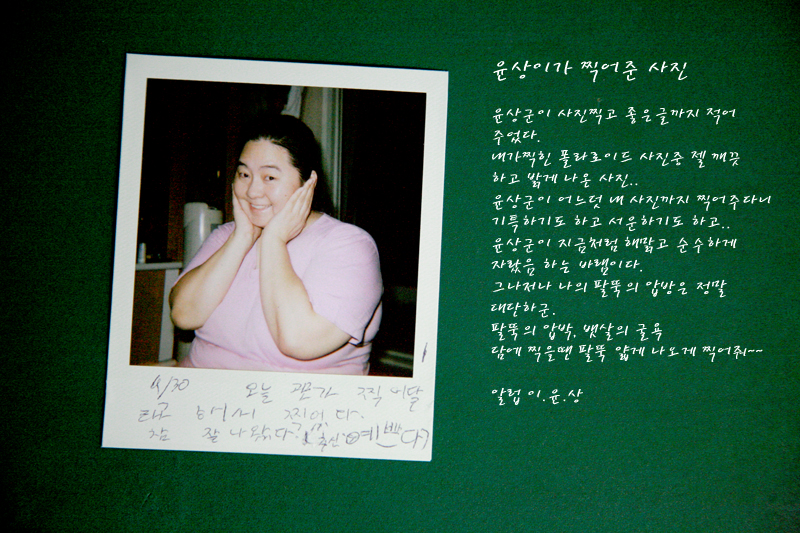 윤상이가 찍어준 사진
윤상군이 사진찍고 좋은글까지 적어
주었다.
내가찍힌 폴라로이드 사진중 젤 깨끗
하고 밝게 나온 사진..
윤상군이 어느덧 내 사진까지 찍어주다니
기특하기도 하고 서운하기도 하고..
윤상군이 지금처럼 해맑고 순수하게
자랐음 하는 바램이다.
그나저나 나의 팔뚝의 압방은 정말
대단하군.
팔뚝의 압박, 뱃살의 굴욕
담에 찍을땐 팔뚝 얇게 나오게 찍어줘~~
알럽 이.윤.상
4/30 오늘 찍어달
해서 찍어다.
참 잘 예쁘다